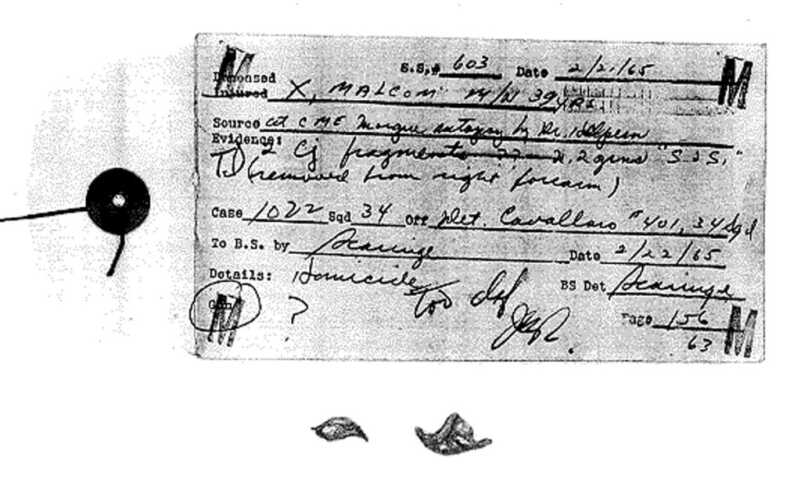 M M
S.S.# 603 Date 2/21/65
Deceased
Injured X, MALCOM M/N 39 yrs
Source at CME Morgue autopsy by Dr. Halpern
Evidence: 2 Cj fragments 2.2 grms "S.S."
(removed from right forearm)
Case 1022 Sqd 34 Off Det. Cavallaro #401, 34 Sqd
To B.S. by Scaringe Date 2/22/65
Details: Homicide BS Det Scaringe
too def
Gun ? Page 156
M 63 M